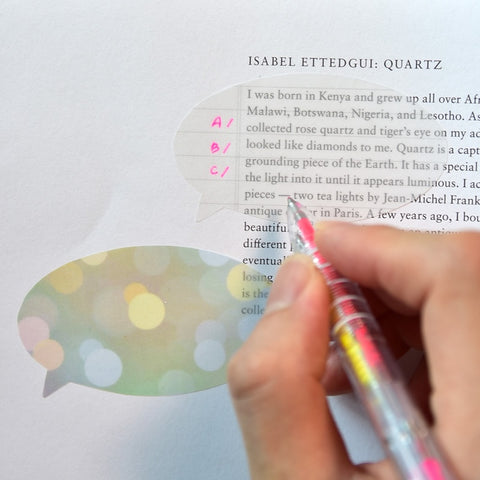 ISABEL ETTEDGUI: QUARTZ
I was born in Kenya and grew up all over
Malawi, Botswana, Nigeria, and Lesotho.
A/
collected rose quartz and tiger's eye on my
B/
looked like diamonds to me. Quartz is a
C/
grounding piece of the Earth. It has a special
the light into it until it appears luminous. I
pieces — two tea lights by Jean-Michel Frank
antique in Paris. A few years ago, I
different
losing
is the